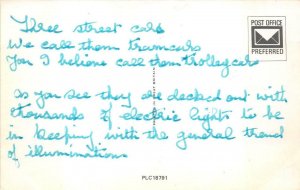 Three street cars
We call them tramcars
You I believe call them trolleycars
as you see they are decked out with
thousands of electric lights to be
in keeping with the general
of illuminations
POST OFFICE
PREFERRED
PLC16791